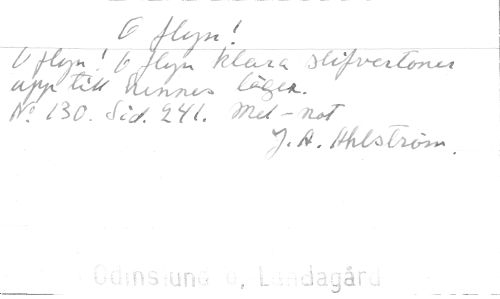 O flyn!
O flyn! O flyn klara silfvertoner
upp till hennes läger.
No 130. Sid. 241. Mel-not
J. A. Ahlström.
Odinslund o. Landagård